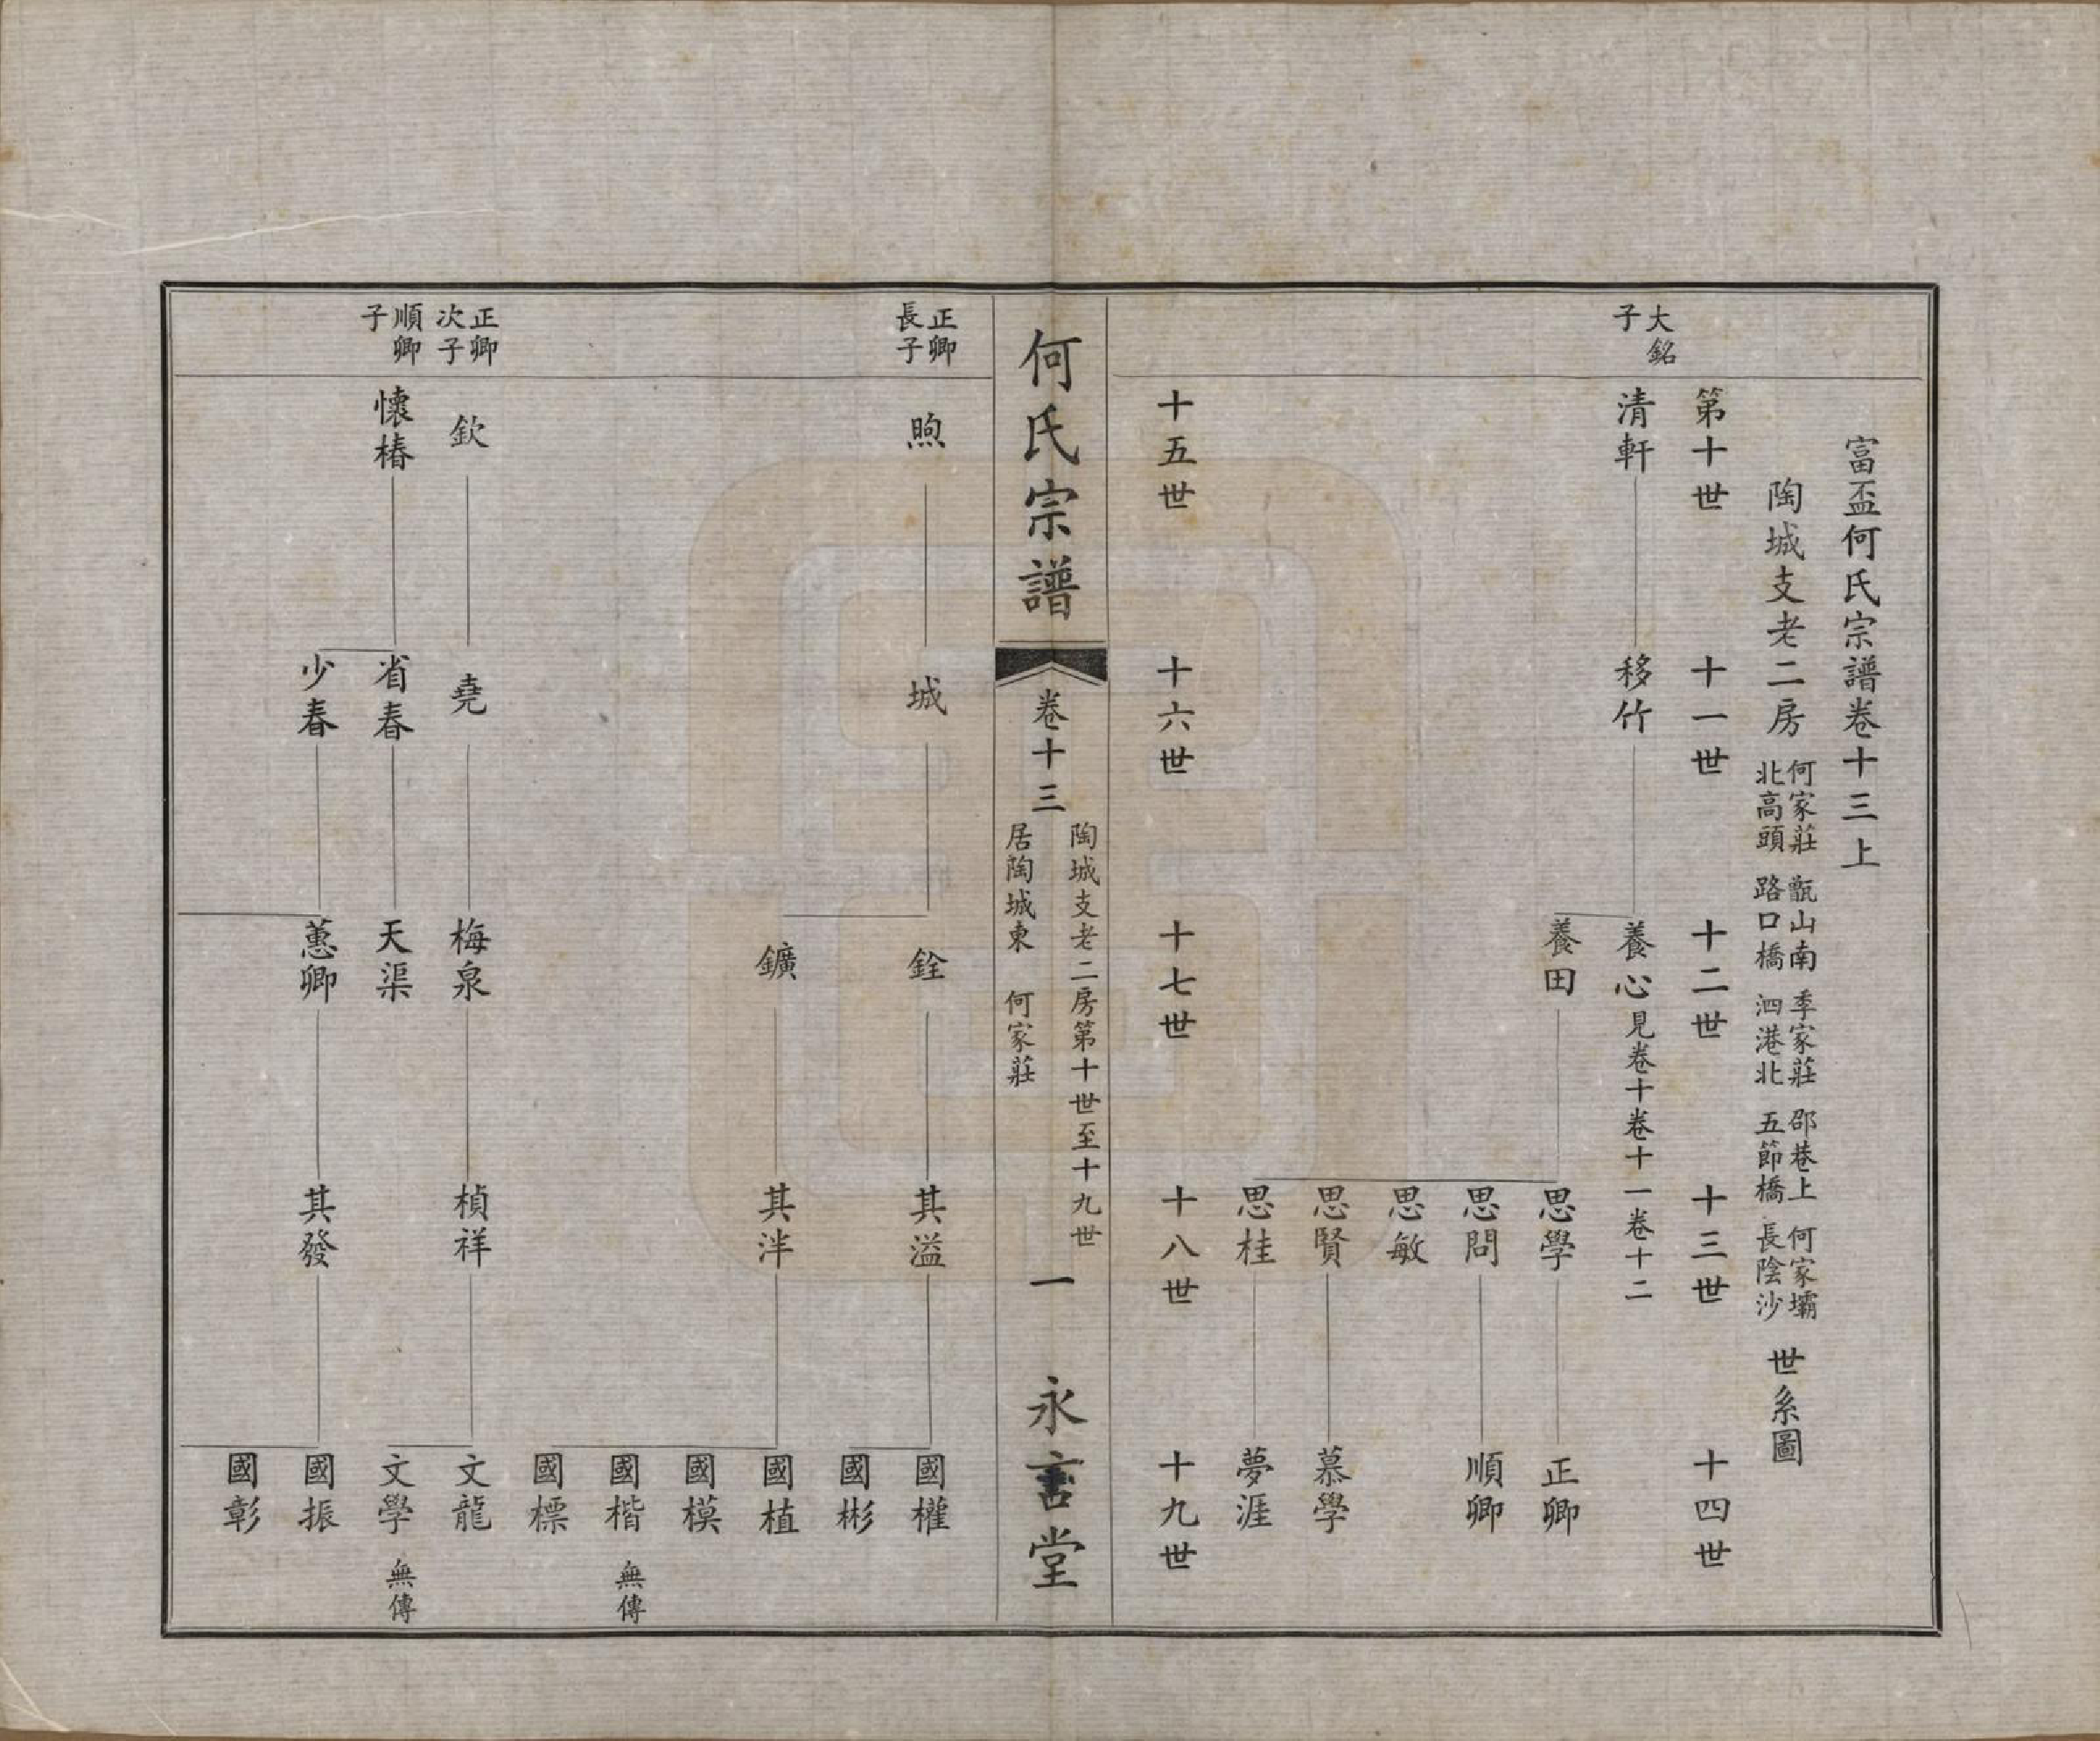 富盃何氏宗譜卷十三上
陶城支老二房
何家莊 甑山南 季家莊 邵巷上 何家壩
北高頭 路口橋 泗港北 五節橋 長陰沙
世系圖
第十世 十一世 十二世 十三世 十四世
大銘
子
清軒 移竹 養心 見卷十卷十一卷十二
養田 思學 正卿
思問 順卿
思敏
思賢 慕學
思桂 夢涯
十五世 十六世 十七世 十八世 十九世
何氏宗譜
卷十三
陶城支老二房第十世至十九世
居陶城東 何家莊
一
永言堂
正卿
長子
煦 城 銓 其溢 國權
國彬
鑛 其泮 國植
國模
國楷 無傳
國標
正卿
次子
欽 堯 梅泉 楨祥 文龍
文學 無傳
順卿
子
懷椿 省春 天渠
少春 蕙卿 其發 國振
國彰